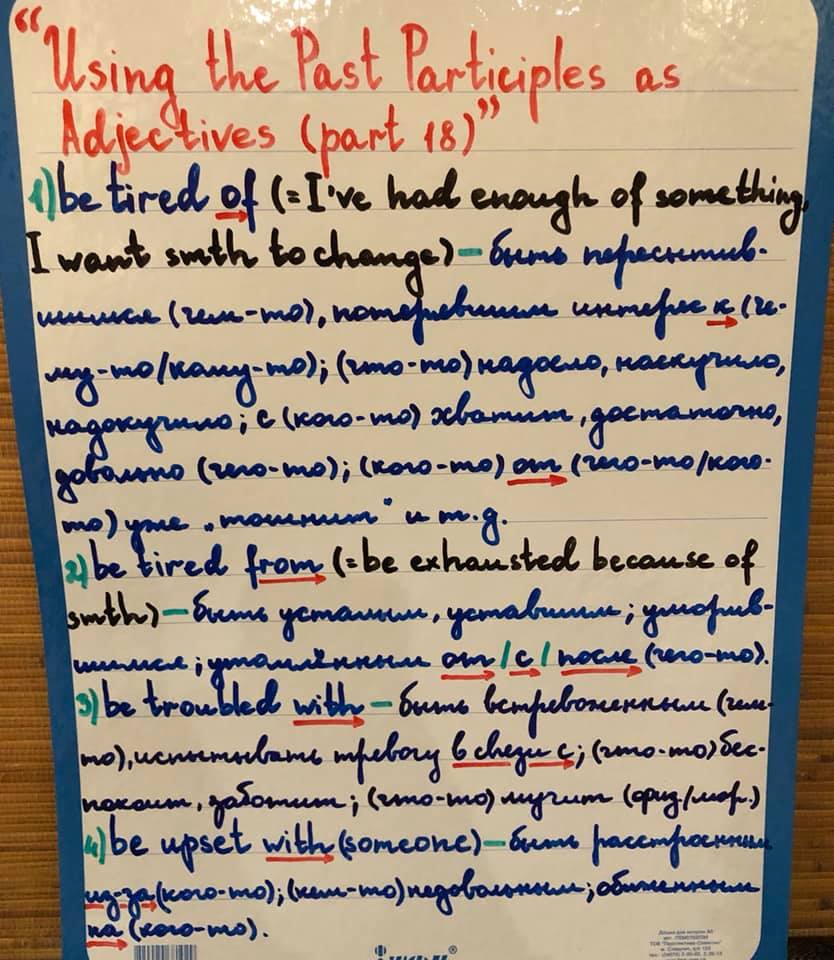 “Using the Past Participles as
Adjectives (part 18)”
1) be tired of (= I've had enough of something,
I want smth to change) – быть пересытив-
шимся (чем-то), потерявшим интерес к (че-
му-то/кому-то); (что-то) надоело, наскучило,
надокучило; с (кого-то) хватит, достаточно,
довольно (чего-то); (кого-то) от (чего-то/кого-
то) уже „тошнит” и т.д.
2) be tired from (= be exhausted because of
smth) – быть усталым, уставшим; уморив-
шимся; утомлённым от / с / после (чего-то).
3) be troubled with – быть встревоженным (чем-
то), испытывать тревогу в связи с; (что-то) бес-
покоит, заботит; (что-то) мучит (физ./мор.)
4) be upset with (someone) – быть расстроенным
из-за (кого-то); (кем-то) недовольным; обиженным
на (кого-то).